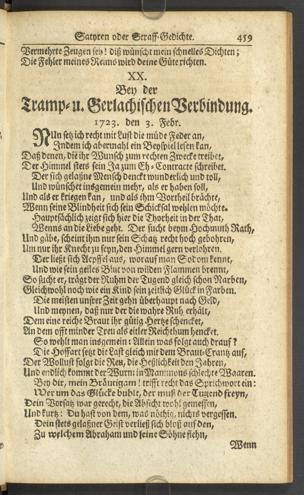 Satyren oder Straff-Gedichte. 459
Vermehrte Zeugen sey! diß wünscht mein schnelles Dichten;
Die Fehler meines Reims wird deine Güte richten.
XX.
Bey der
Tramp- u. Gerlachischen Verbindung.
1723. den 3. Febr.
NUn setz ich recht mit Lust die müde Feder an,
Indem ich abermahl ein Beyspiel lesen kan,
Daß denen, die ihr Wunsch zum rechten Zwecke treibet,
Der Himmel stets sein Ja zum Eh-Contracte schreibet.
Der sich gelaßne Mensch denckt wunderlich und toll,
Und wünschet insgemein mehr, als er haben soll,
Und als er kriegen kan, und als ihm Vortheil brächte,
Wenn seine Blindheit sich sein Schicksal wehlen möchte.
Hauptsächlich zeigt sich hier die Thorheit in der That,
Wenns an die Liebe geht. Der sucht beym Hochmuth Rath,
Und gäbe, scheint ihm nur sein Schatz recht hoch gebohren,
Um nur ihr Knecht zu seyn, den Himmel gern verlohren.
Der ließt sich Aepffel aus, worauf man Sodom kennt,
Und wie sein geiles Blut von wilden Flammen brennt,
So sucht er, trägt der Ruhm der Tugend gleich schon Narben,
Gleichwohl noch wie ein Kind sein zeitlich Glück in Farben.
Die meisten unsrer Zeit gehn überhaupt nach Geld,
Und meynen, daß nur der die wahre Ruh erhält,
Dem eine reiche Braut ihr gütig Hertze schencket,
An dem offt minder Treu als eitler Reichthum hencket.
So wehlt man insgemein: Allein was folgt auch drauf?
Die Hoffart setzt die Last gleich mit dem Braut-Crantz auf,
Der Wollust folgt die Reu, die Heßlichkeit den Jahren,
Und endlich kommt der Wurm in Mammons schlechte Waaren.
Bey dir, mein Bräutigam! trifft recht das Sprichwort ein:
Wer um das Glücke buhlt, der muß der Tugend freyn,
Dein Vorsatz war gerecht, die Absicht wohl gemessen,
Und kurtz: Du hast von dem, was nöthig, nichts vergessen.
Dein stets gelaßner Geist verließ sich bloß auf den,
Zu welchem Abraham und seine Söhne flehn,
Wenn